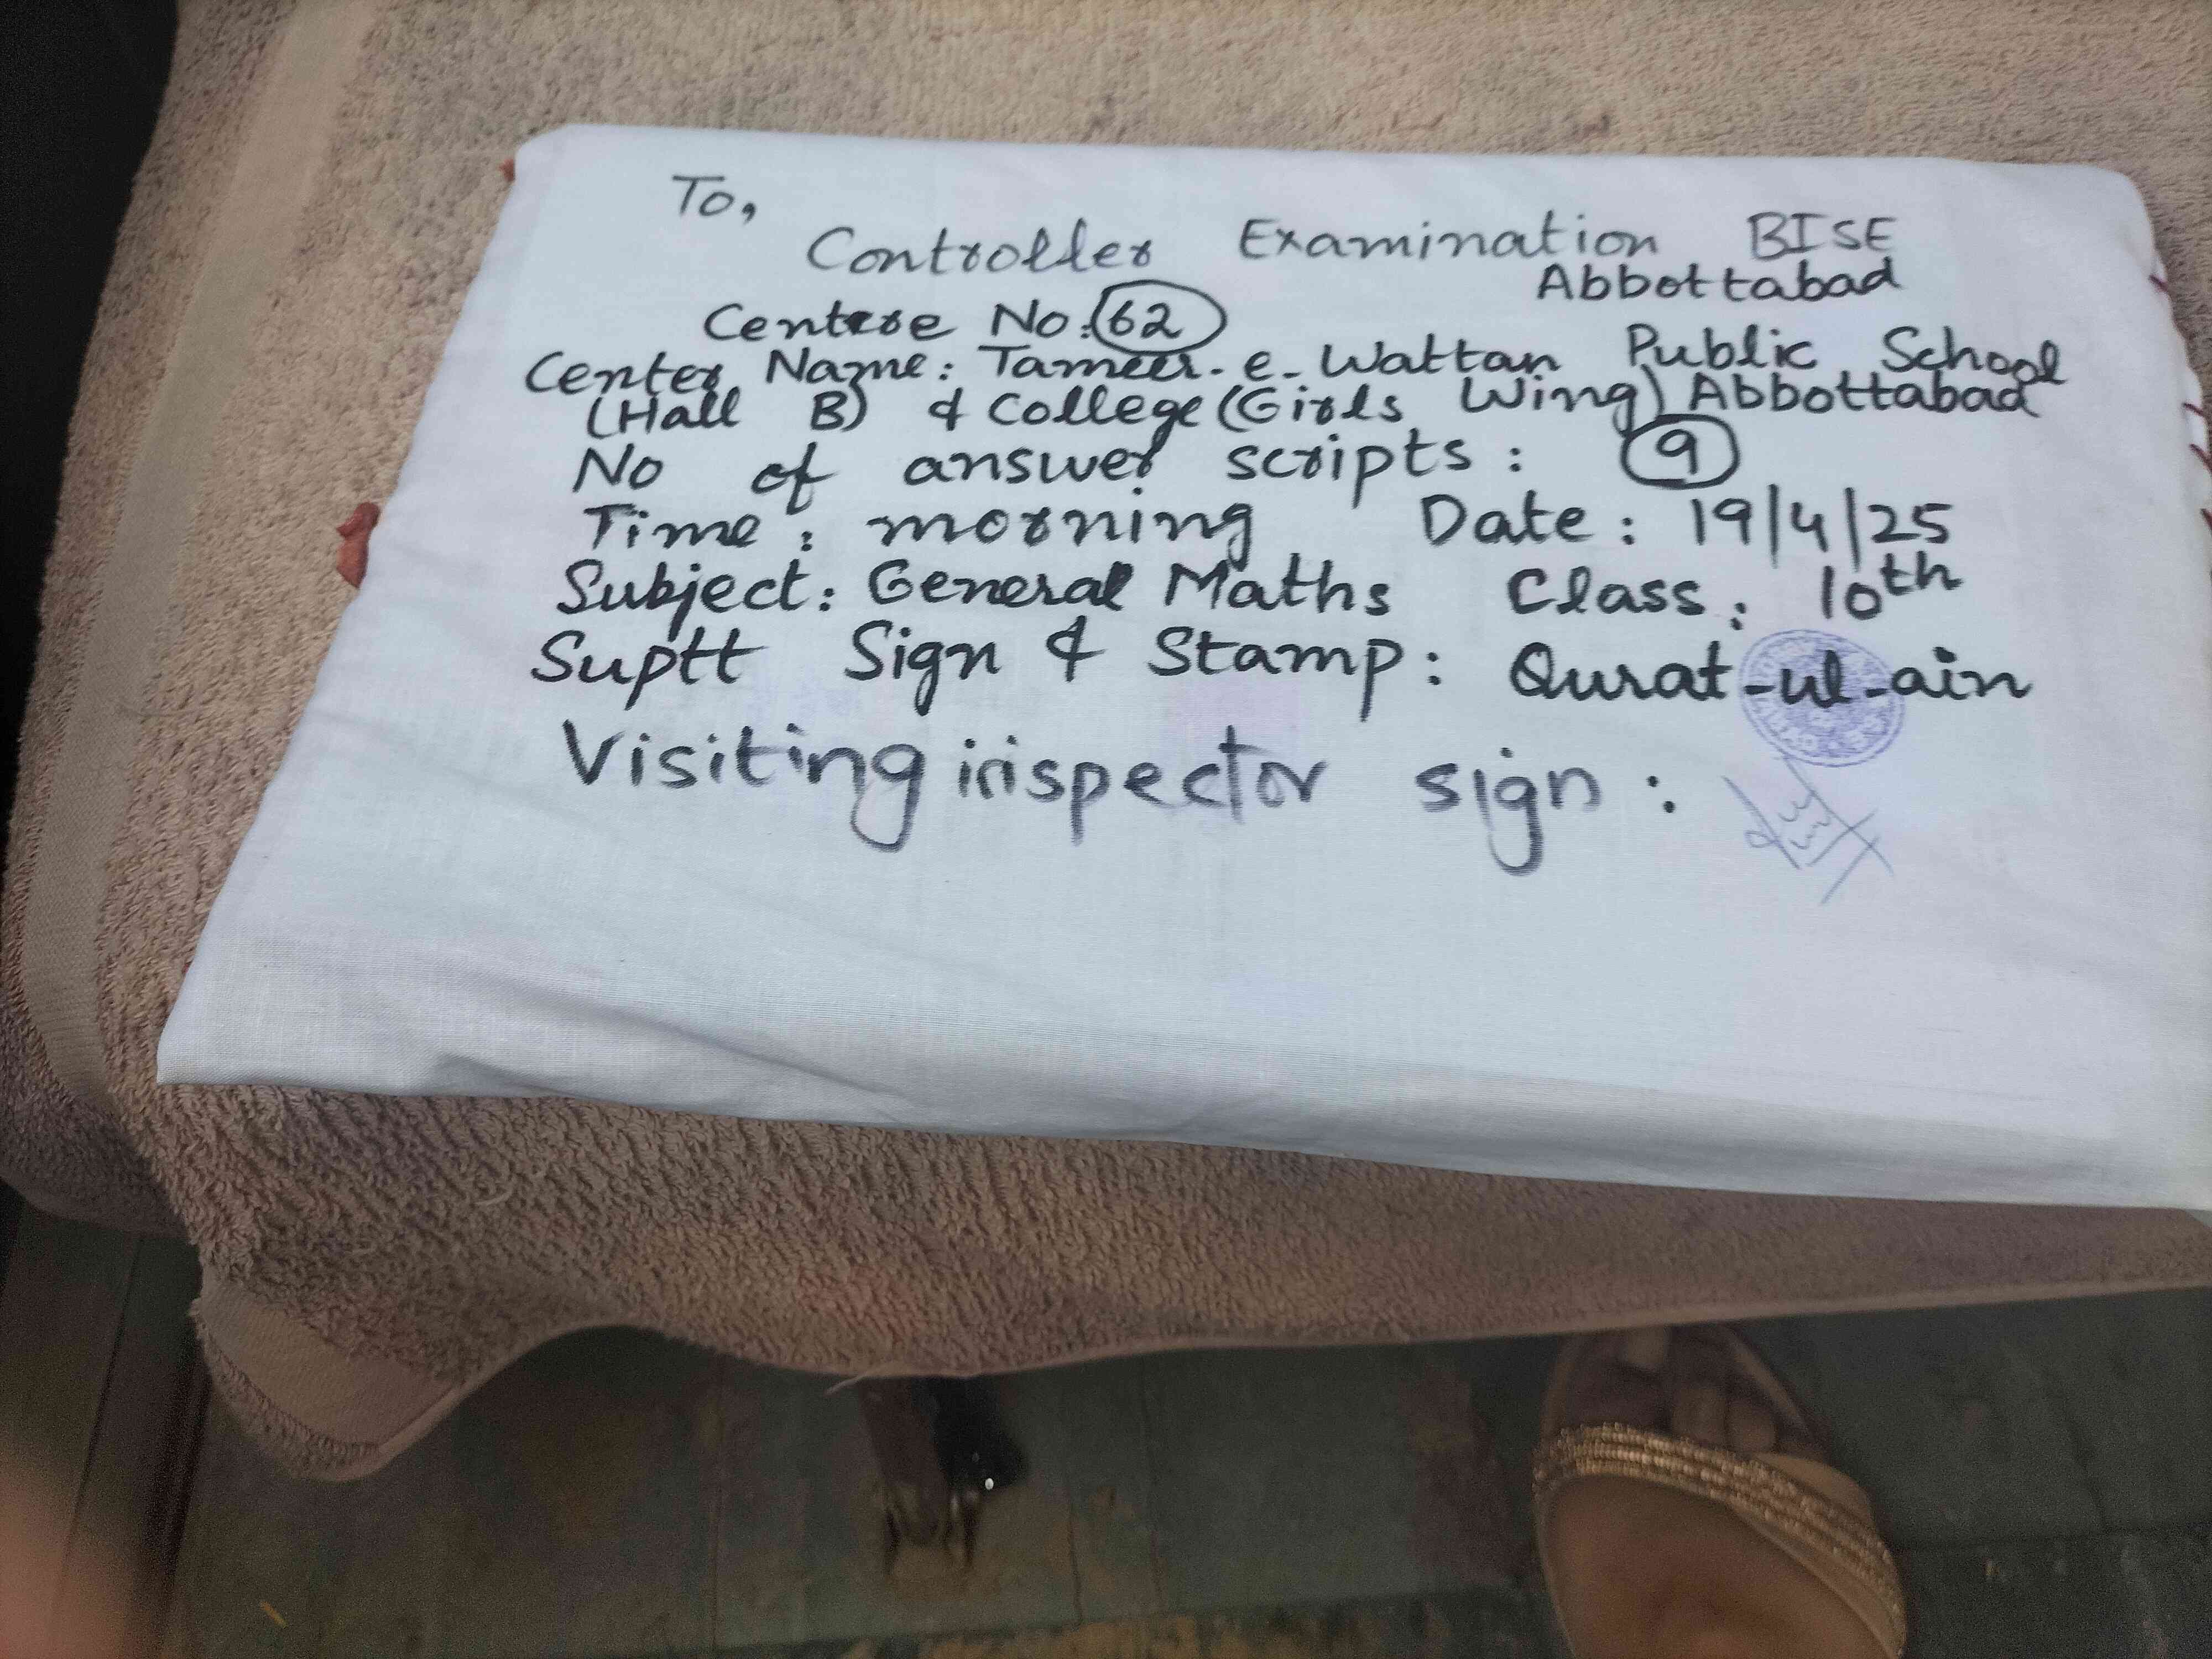 To,
Controller Examination BISE
Abbottabad
Centre No: 62
Center Name: Tameer-e-Wattan Public School
(Hall B) & College (Girls Wing) Abbottabad
No of answer scripts: 9
Time: morning Date: 19/4/25
Subject: General Maths Class: 10th
Suptt Sign & Stamp: Qurat-ul-ain
Visiting inspector sign: